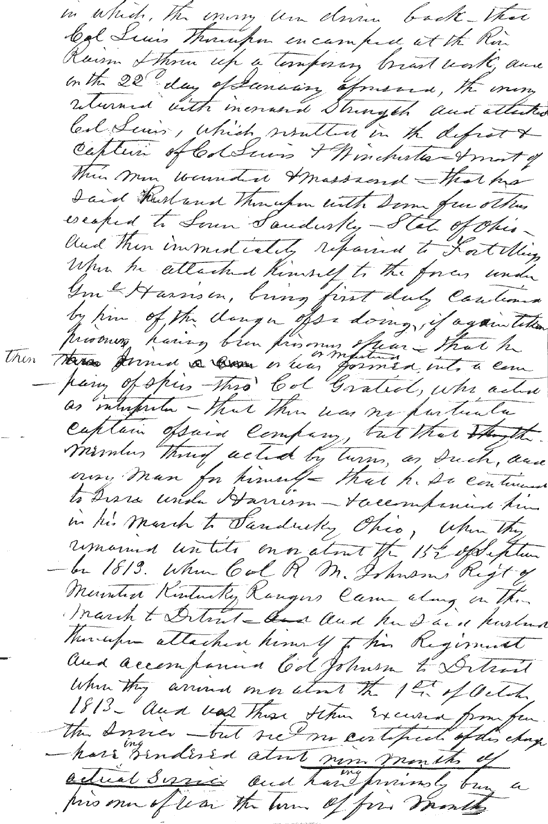 in which, the enemy were driven back – that
Col Lewis thereupon encamped at the River
Raisin & threw up a temporary breast work, and
on the 22d day of January aforesaid, the enemy
returned with increased Strength and attacked
Col Lewis, which resulted in the defeat &
capture of Col Lewis & Winchester – & most of
their men wounded & massacred – that her
said Husband thereupon with some few others
escaped to Lower Sandusky – State of Ohio –
and then immediately repaired to Fort Meigs
when he attached himself to the forces under
Genl Harrison, being first duly cautioned
by him of the danger of so doing, if again taken
prisoner, having been prisoner of war – that he
then joined or was formed into a com
pany of Spies – this Col Gratiot, who acted
as interpreter – that there was no particular
captain of said Company, but that the
members thereof acted by turns, as such, and
every man for himself – that he so continued
to serve under Harrison – & accompanied him
in his march to Sandusky Ohio, when they
remained until on or about the 15th of Septem
ber 1813. when Col R M. Johnsons Regt of
Mounted Kentucky Rangers came along on their
march to Detroit – and her said husband
thereupon attached himself to his Regiment
and accompanied Col Johnson to Detroit
when they arrived on or about the 1st of October
1813 – and was there & then excused from fur
ther service – but recd no certificate of discharge
– having rendered about nine months of
actual Service and having previously been a
prisoner of war the term of five months